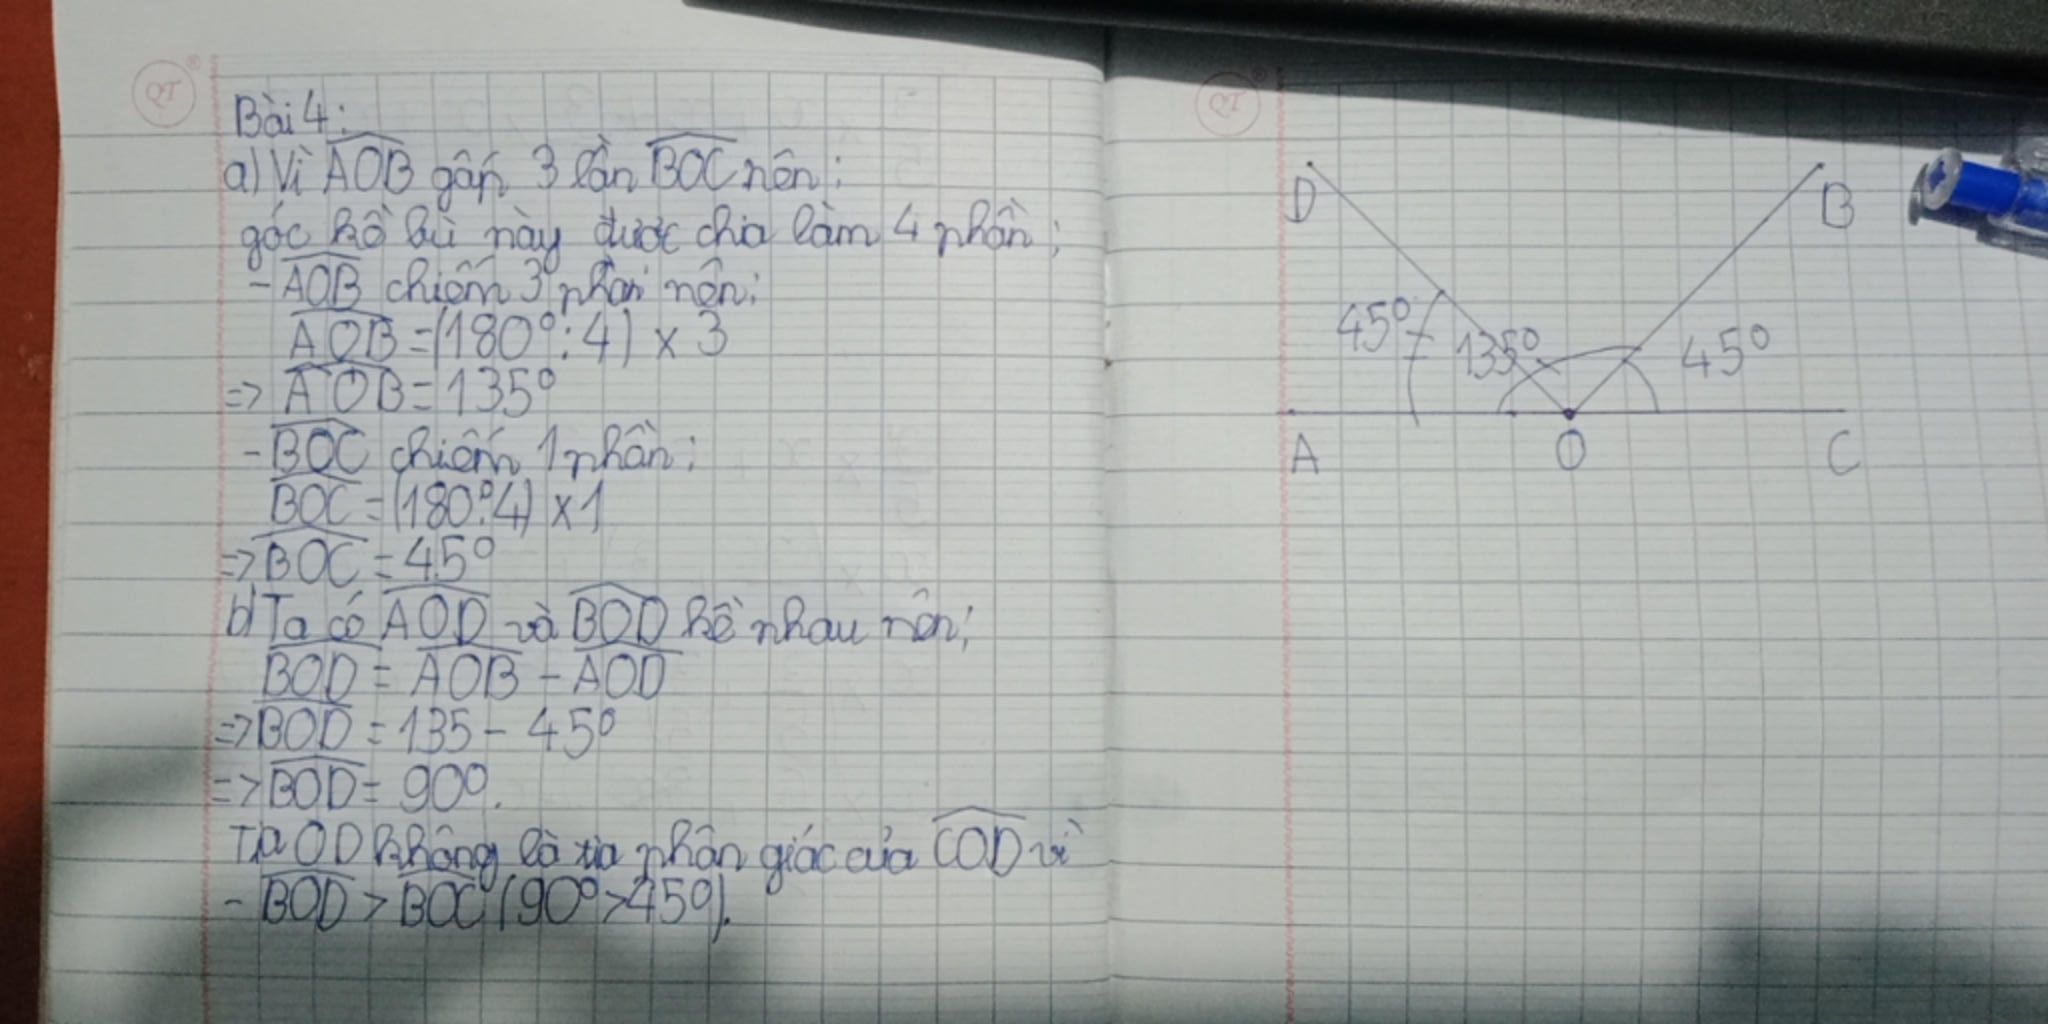 QT
Bài 4:
a) Vì AOB gấp 3 lần BOC nên:
góc kề bù này được chia làm 4 phần;
- AOB chiếm 3 phần nên:
AOB = (180° : 4) x 3
=> AOB = 135°
- BOC chiếm 1 phần:
BOC = (180° : 4) x 1
=> BOC = 45°
b) Ta có AOD và BOD kề nhau nên:
BOD = AOB - AOD
=> BOD = 135 - 45°
=> BOD = 90°.
Tia OD không là tia phân giác của COD vì
- BOD > BOC (90° > 45°).
QT
D B
45° 135° 45°
A O C